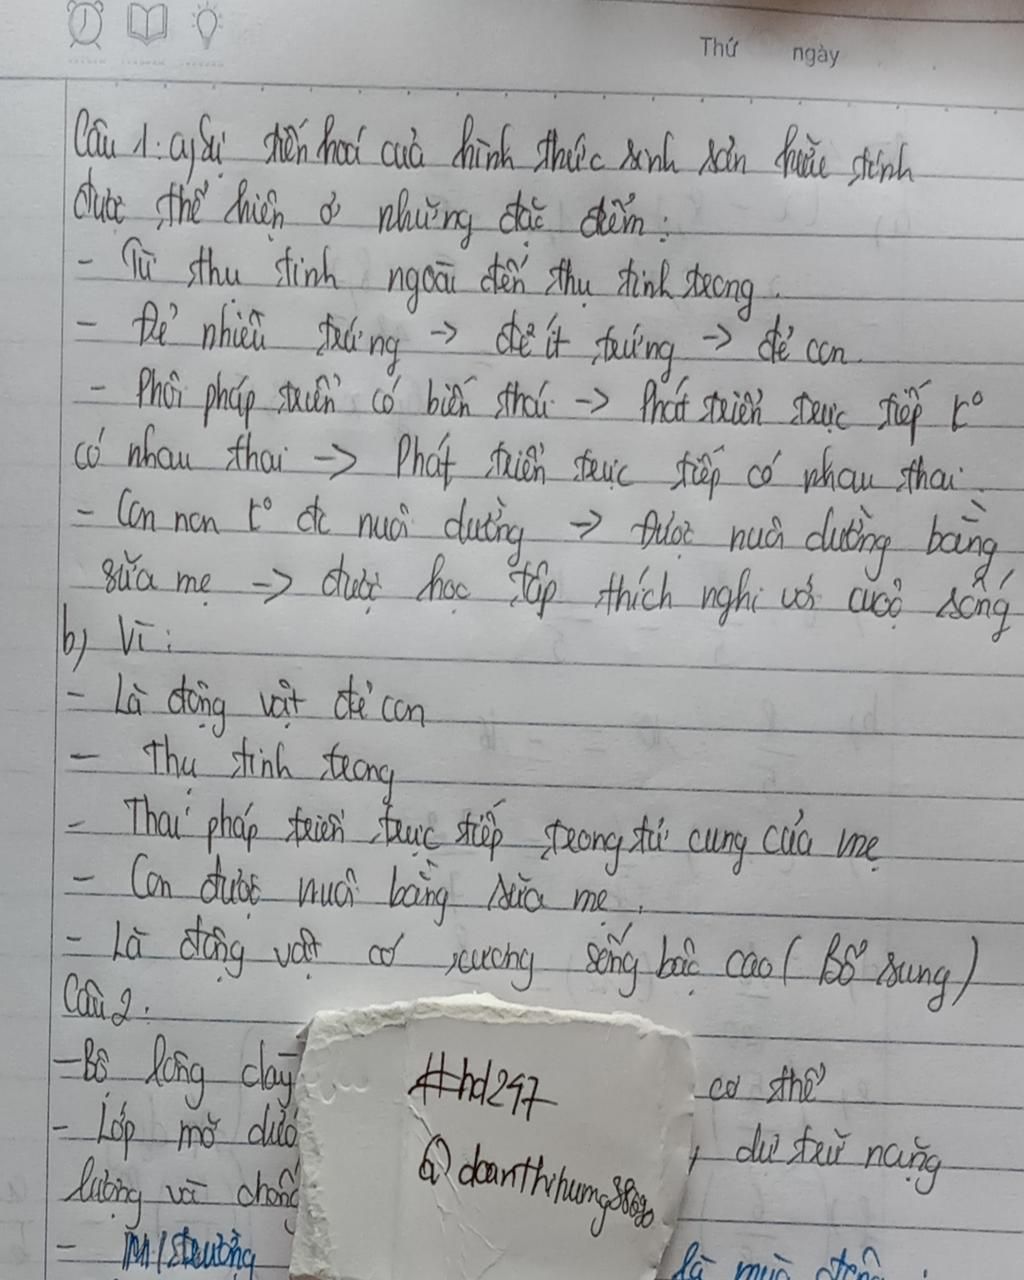 Thứ ngày
Câu 1: a) Sự tiến hoá của hình thức sinh sản hữu tính
được thể hiện ở những đặc điểm:
- Từ thụ tinh ngoài đến thụ tinh trong.
- Đẻ nhiều trứng -> đẻ ít trứng -> đẻ con.
- Phôi pháp triển có biến thái -> Phát triển trực tiếp k°
có nhau thai -> Phát triển trực tiếp có nhau thai.
- Con non k° đc nuôi dưỡng -> Được nuôi dưỡng bằng
sữa mẹ -> được học tập thích nghi với cuộc sống
b) Vì:
- Là động vật đẻ con
- Thụ tinh trong
- Thai pháp triển trực tiếp trong tử cung của mẹ
- Con được nuôi bằng sữa mẹ.
- Là động vật có xương sống bậc cao (Bổ sung)
Câu 2.
- Bộ lông dày cơ thể
- Lớp mỡ dưới , dự trữ năng
lượng và chống
- M/trường là mùa đông
#hd247
@doanthihumg38690